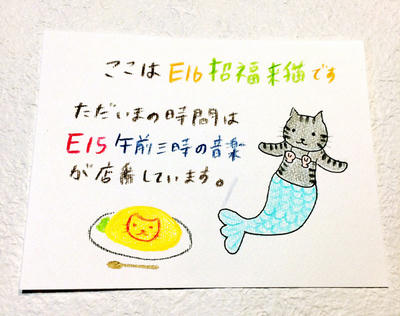 ここは E16 招福来猫です
ただいまの時間は
E15 午前三時の音楽
が店番しています。